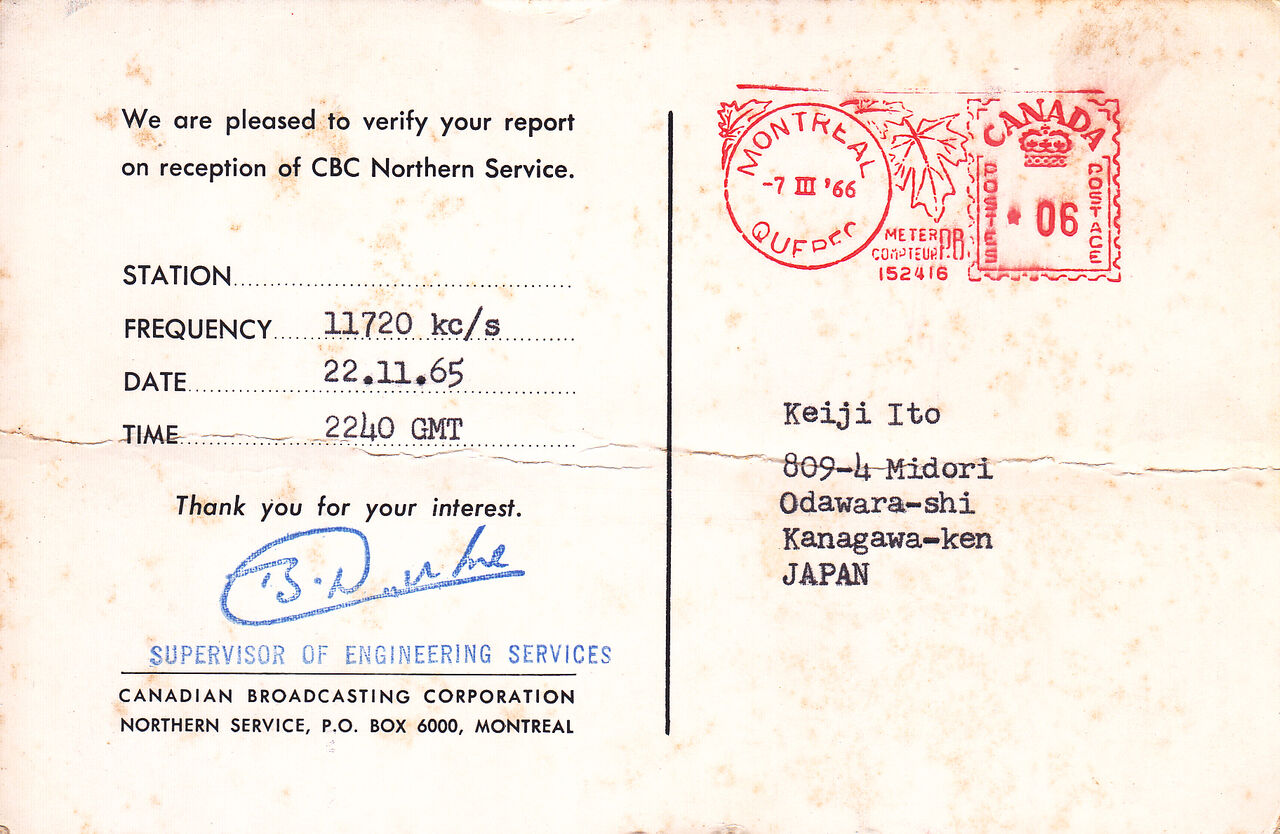 We are pleased to verify your report
on reception of CBC Northern Service.
STATION
FREQUENCY 11720 kc/s
DATE 22.11.65
TIME 2240 GMT
Thank you for your interest.
SUPERVISOR OF ENGINEERING SERVICES
CANADIAN BROADCASTING CORPORATION
NORTHERN SERVICE, P.O. BOX 6000, MONTREAL
MONTREAL
-7 III '66
QUEBEC
METER
COMPTEUR
P.B.
152416
CANADA
POSTES
* 06
POSTAGE
Keiji Ito
809-4 Midori
Odawara-shi
Kanagawa-ken
JAPAN